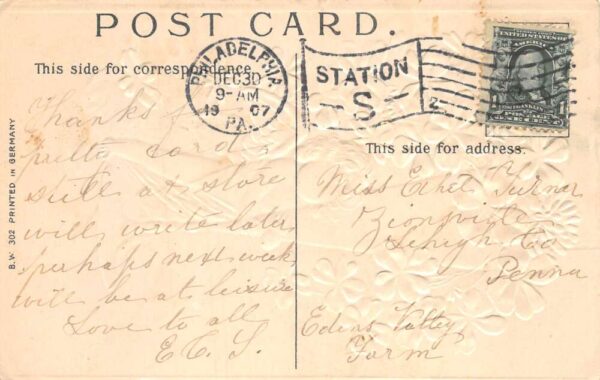 POST CARD.
This side for correspondence.
PHILADELPHIA
DEC 30
9-AM
1907
PA.
STATION
S
2
UNITED STATES OF AMERICA
This side for address.
B.W. 302 PRINTED IN GERMANY
Thanks for
pretty card
still at store
will write later
perhaps next week
will be at leisure
Love to all
Miss Ethel Turner
Zionsville
Lehigh Co
Penna
Edens Valley
Farm